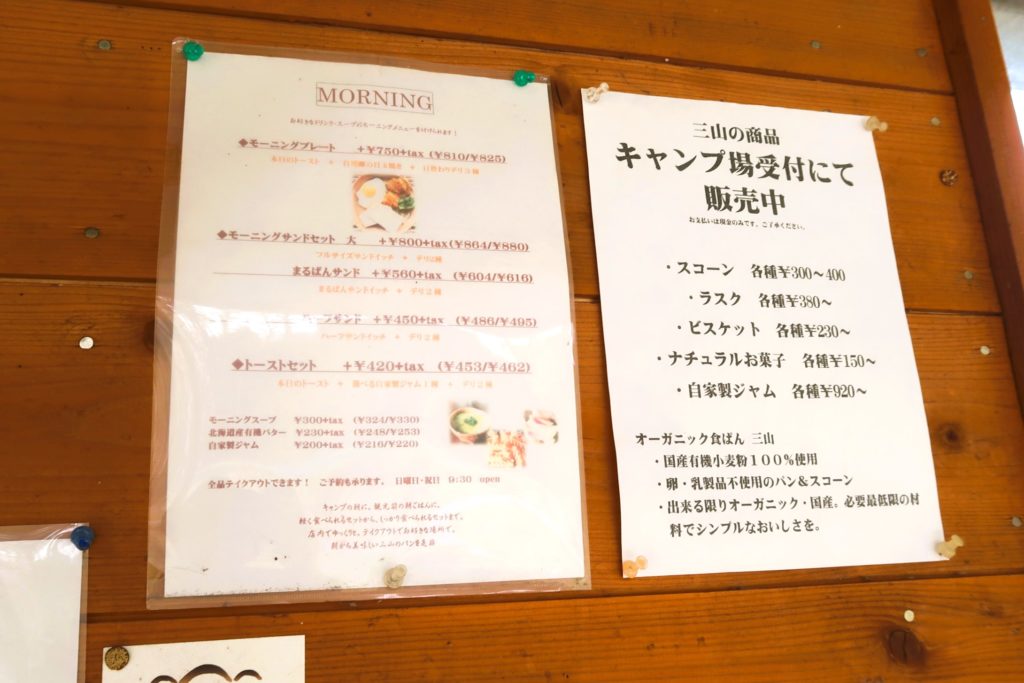 MORNING
お好きなドリンク・スープにモーニングメニューを付けられます！
◆モーニングプレート ＋¥750+tax (¥810/¥825)
本日のトースト ＋ 自見鶏の目玉焼き ＋ 日替わりデリ3種
◆モーニングサンドセット 大 ＋¥800+tax(¥864/¥880)
フルサイズサンドイッチ ＋ デリ2種
まるぱんサンド ＋¥560+tax (¥604/¥616)
まるぱんサンドイッチ ＋ デリ２種
ハーフサンド ＋¥450+tax (¥486/¥495)
ハーフサンドイッチ ＋ デリ２種
◆トーストセット ＋¥420+tax (¥453/¥462)
本日のトースト ＋ 選べる自家製ジャム１種 ＋ デリ２種
モーニングスープ ¥300+tax (¥324/¥330)
北海道産有機バター ¥230+tax (¥248/¥253)
自家製ジャム ¥200+tax (¥216/¥220)
全品テイクアウトできます！ ご予約も承ります。 日曜日・祝日 9:30 open
キャンプの朝に。観光前の朝ごはんに。
軽く食べられるセットから、しっかり食べられるセットまで。
店内でゆっくりと。テイクアウトでお好きな場所で。
朝から美味しい三山のパンを是非
三山の商品
キャンプ場受付にて
販売中
お支払いは現金のみです。ご了承ください。
・スコーン 各種¥300～400
・ラスク 各種¥380～
・ビスケット 各種¥230～
・ナチュラルお菓子 各種¥150～
・自家製ジャム 各種¥920～
オーガニック食ぱん 三山
・国産有機小麦粉１００％使用
・卵・乳製品不使用のパン＆スコーン
・出来る限りオーガニック・国産。必要最低限の材
料でシンプルなおいしさを。